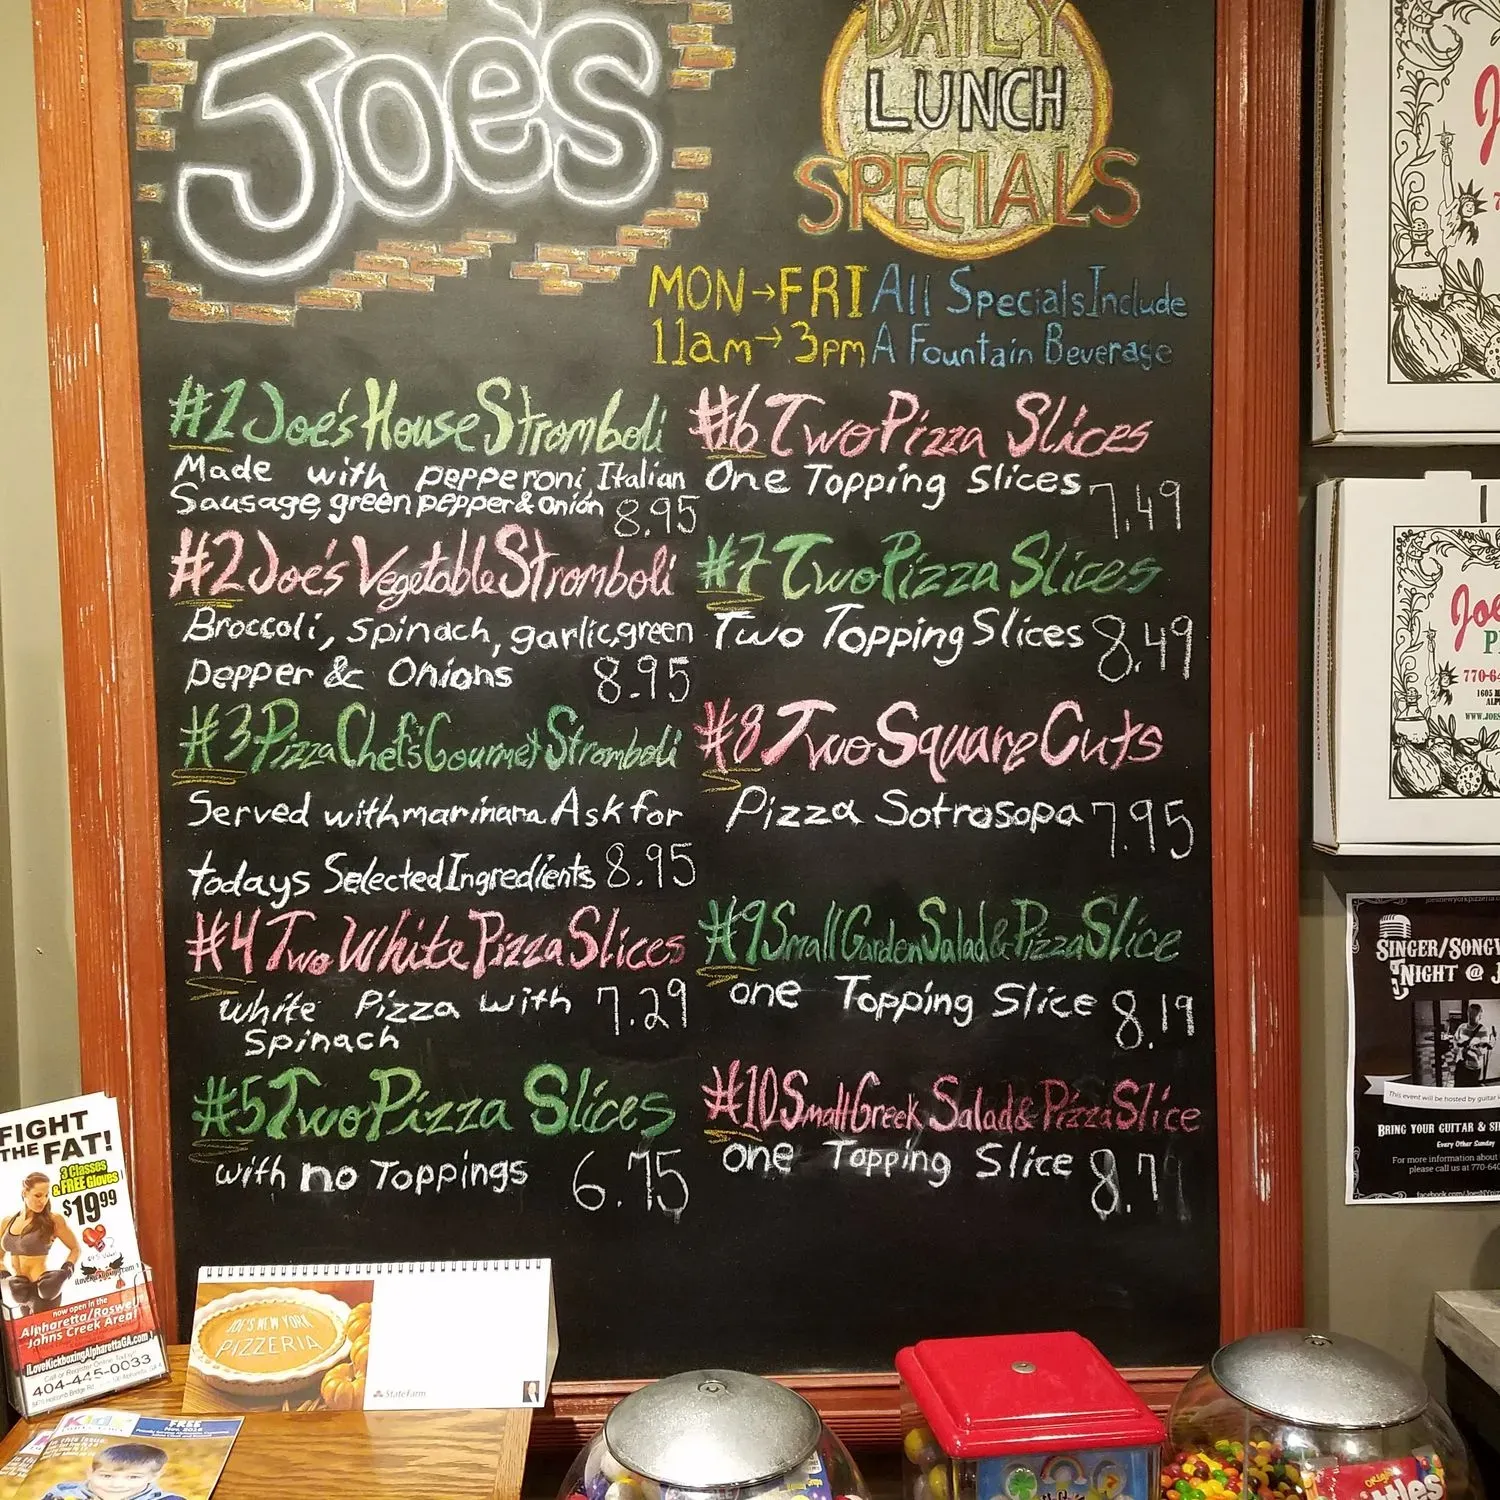 JOE'S
DAILY
LUNCH
SPECIALS
MON→FRI
11am→3pm
All Specials Include
A Fountain Beverage
#1 Joe's House Stromboli
Made with pepperoni, Italian
Sausage, green pepper & onion 8.95
#2 Joe's Vegetable Stromboli
Broccoli, spinach, garlic, green
pepper & Onions 8.95
#3 Pizza Chef's Gourmet Stromboli
Served with marinara Ask for
todays Selected Ingredients 8.95
#4 Two White Pizza Slices
White Pizza with 7.29
Spinach
#5 Two Pizza Slices
with no Toppings 6.75
#6 Two Pizza Slices
One Topping Slices 7.49
#7 Two Pizza Slices
Two Topping Slices 8.49
#8 Two Square Cuts
Pizza Sotrosopa 7.95
#9 Small Garden Salad & Pizza Slice
one Topping Slice 8.19
#10 Small Greek Salad & Pizza Slice
one Topping Slice 8.7
FIGHT
THE FAT!
3 Classes
& FREE Gloves
$19.99
now open in the
Alpharetta/Roswell
Johns Creek Area!
iLoveKickboxingAlpharettaGA.com
404-445-0033
JOE'S NEW YORK
PIZZERIA
StateFarm
FREE
Nov. 2016
770-64
1605
WWW.JOES
SINGER/SONGW
NIGHT @ J
This event will be hosted by guitar
BRING YOUR GUITAR &
Every Other Sunday
For more information about
please call us at 770-640